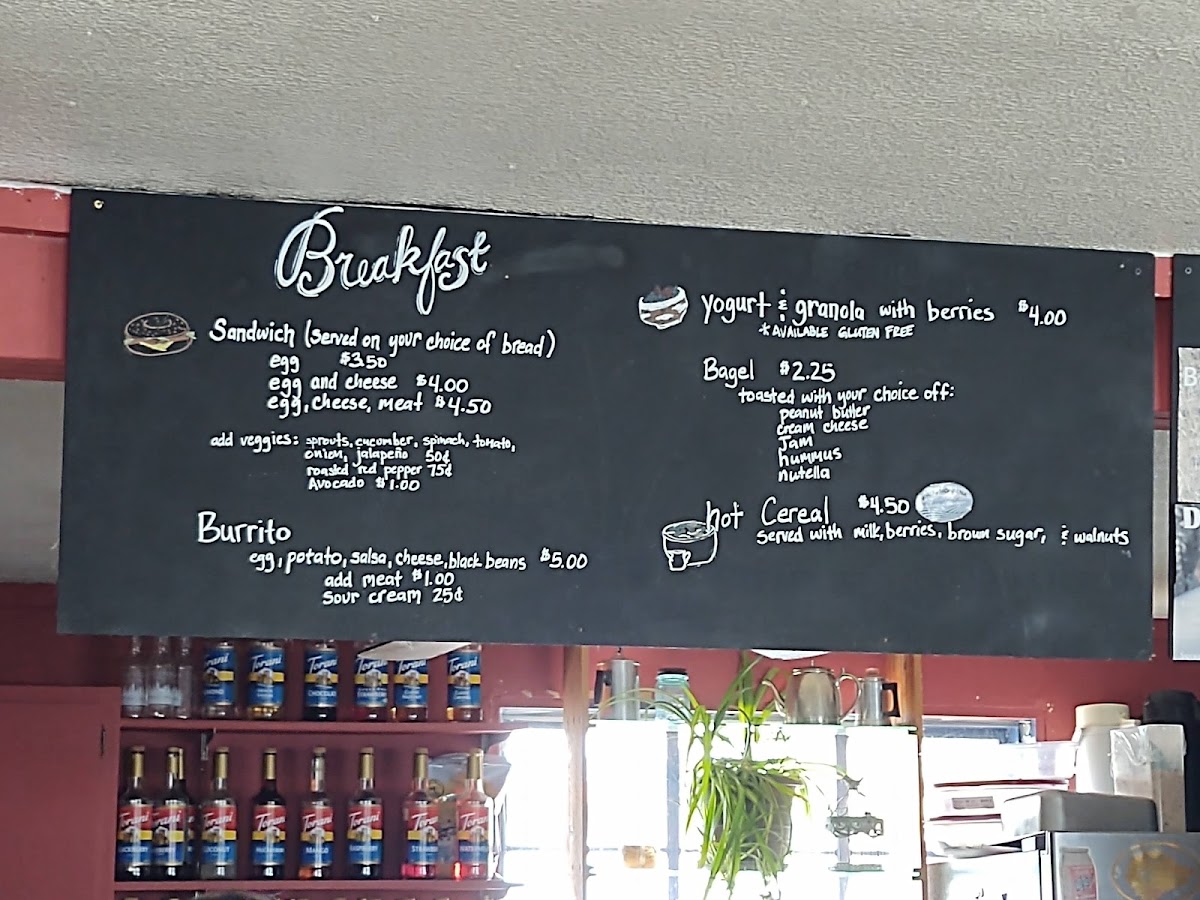 Breakfast
Sandwich (served on your choice of bread)
egg $3.50
egg and cheese $4.00
egg, cheese, meat $4.50
add veggies: sprouts, cucumber, spinach, tomato,
onion, jalapeño 50¢
roasted red pepper 75¢
Avocado $1.00
Burrito
egg, potato, salsa, cheese, black beans $5.00
add meat $1.00
Sour cream 25¢
yogurt & granola with berries $4.00
*AVAILABLE GLUTEN FREE
Bagel $2.25
toasted with your choice off:
peanut butter
cream cheese
Jam
hummus
nutella
hot Cereal $4.50
Served with milk, berries, brown sugar, & walnuts
B
D
Torani Torani Torani Torani Torani Torani
CHOCOLATE
Torani Torani Torani Torani Torani Torani Torani Torani
COCONUT MANGO RASPBERRY